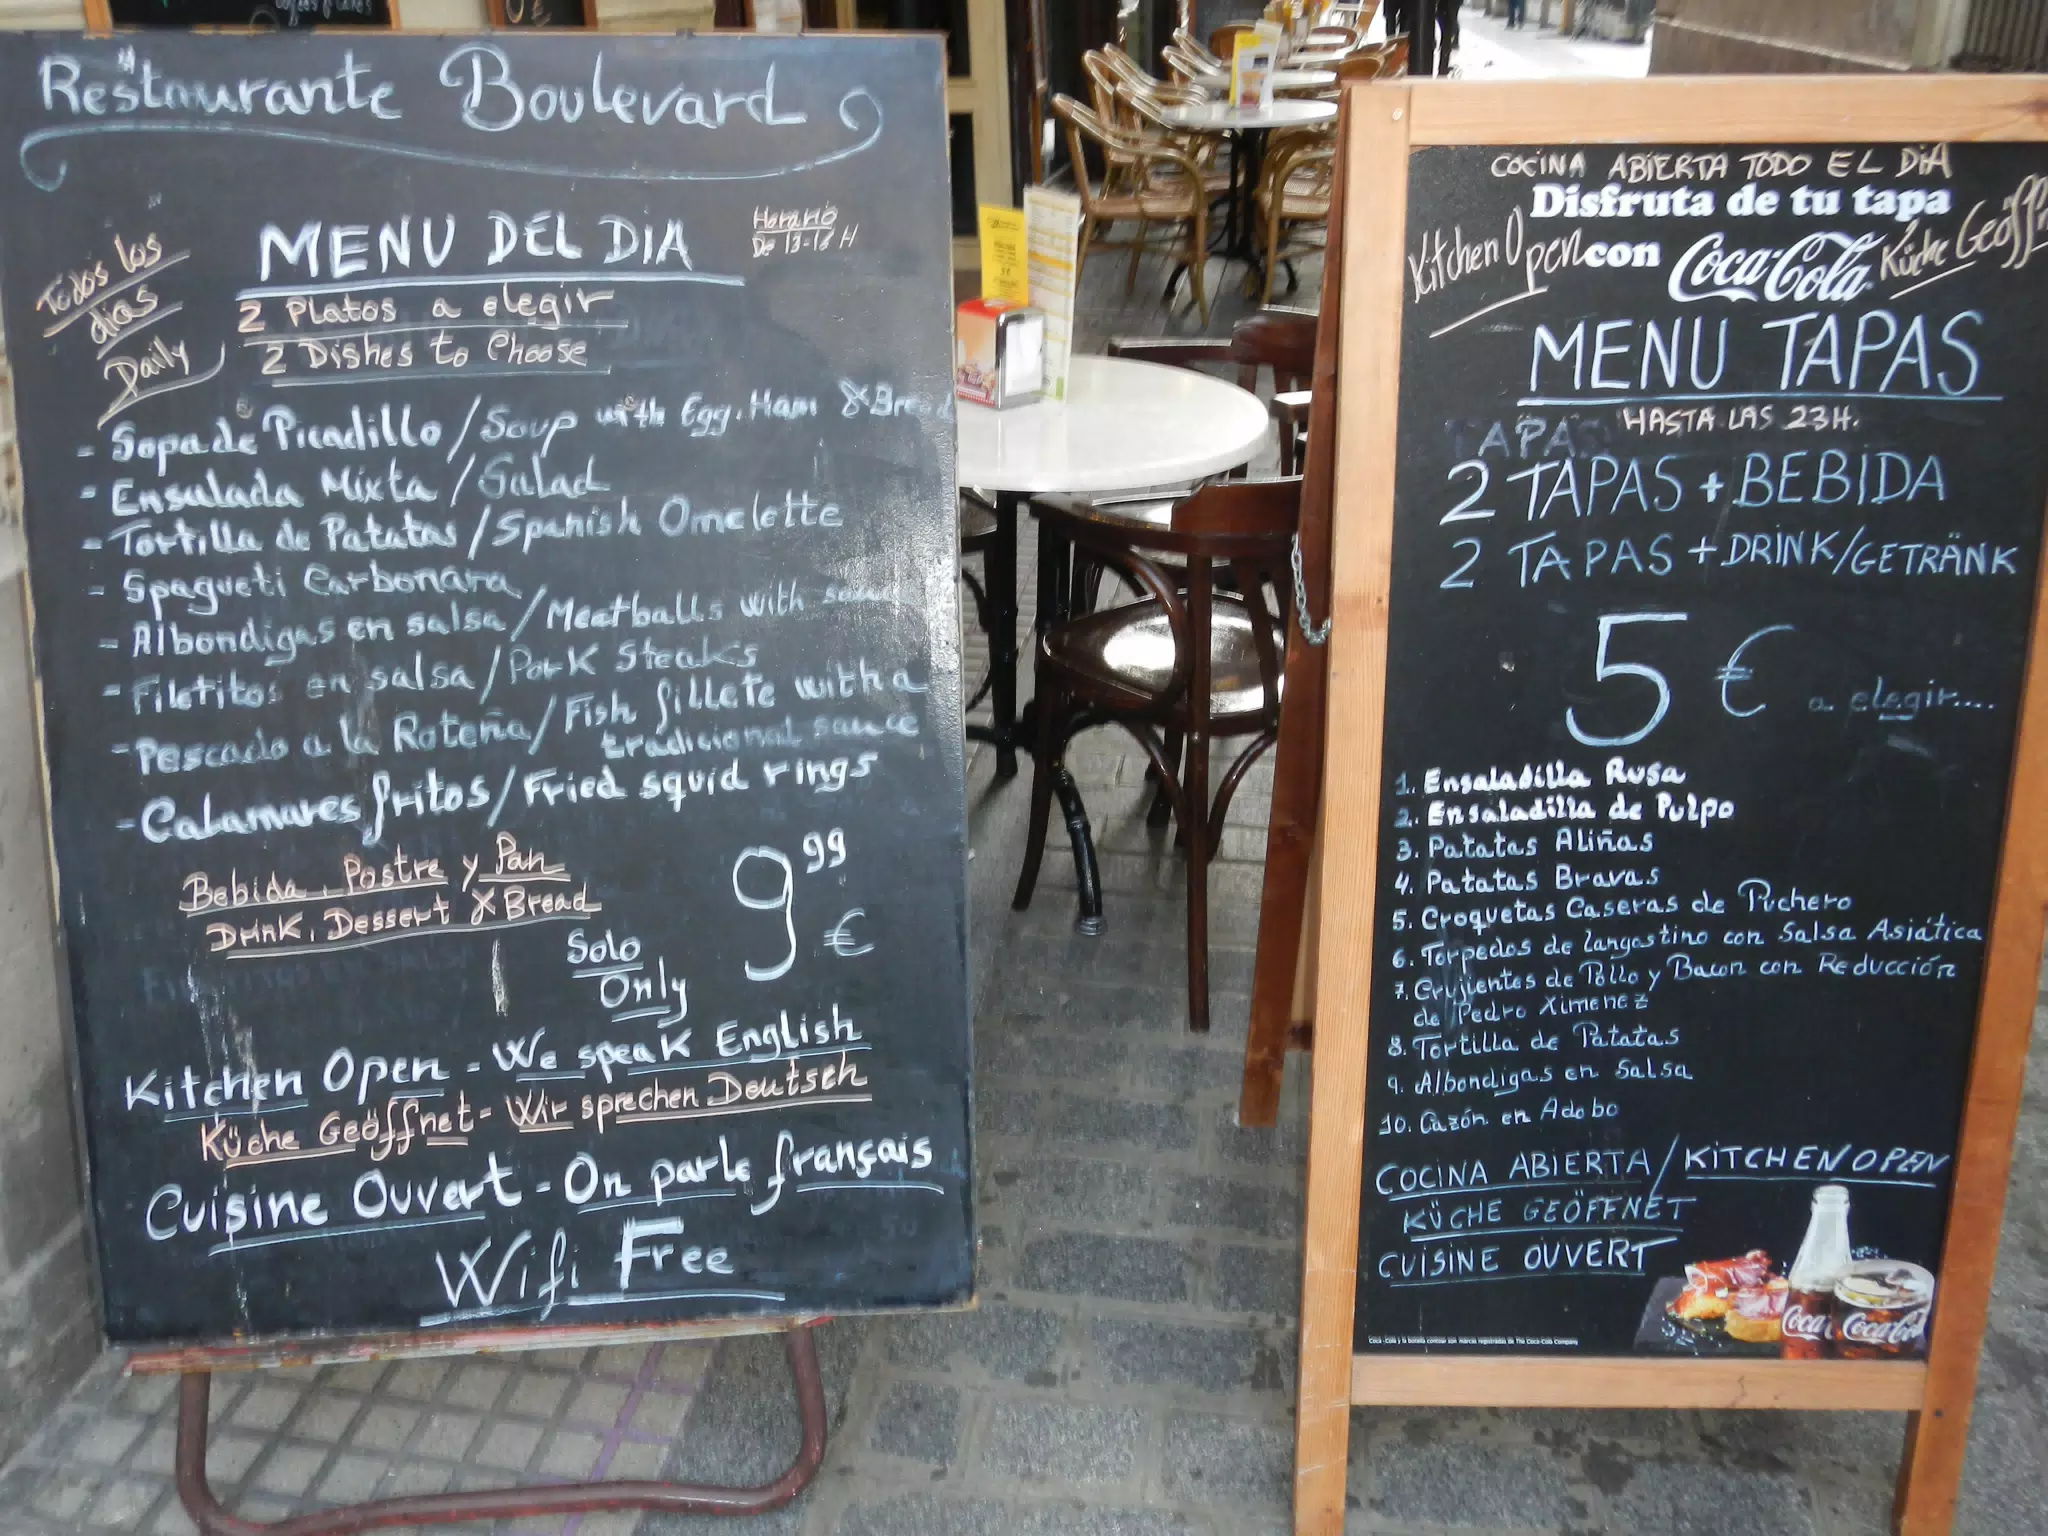 Restaurante Boulevard
MENU DEL DIA
Horario
De 13-16 H
Todos los
dias
Daily
2 Platos a elegir
2 Dishes to Choose
- Sopa de Picadillo / Soup with Egg. Ham & Bread
- Ensalada Mixta / Salad
- Tortilla de Patatas / Spanish Omelette
- Spagueti Carbonara
- Albondigas en salsa / Meatballs with sauce
- Filetitos en salsa / Pork Steaks
- Pescado a la Roteña / Fish fillete with a
tradicional sauce
- Calamares fritos / Fried squid rings
Bebida, Postre y Pan
Drink, Dessert & Bread
Solo
Only
9 99 €
Kitchen Open - We speak English
Küche Geöffnet - Wir sprechen Deutsch
Cuisine Ouvert - On parle français
Wifi Free
COCINA ABIERTA TODO EL DIA
Disfruta de tu tapa
con Coca-Cola
Kitchen Open
Küche Geöffn
MENU TAPAS
HASTA LAS 23H.
TAPAS
2 TAPAS + BEBIDA
2 TAPAS + DRINK/GETRÄNK
5 €
a elegir....
1. Ensaladilla Rusa
2. Ensaladilla de Pulpo
3. Patatas Aliñas
4. Patatas Bravas
5. Croquetas Caseras de Puchero
6. Torpedos de Langostino con Salsa Asiática
7. Crujientes de Pollo y Bacon con Reducción
de Pedro Ximenez
8. Tortilla de Patatas
9. Albondigas en Salsa
10. Cazón en Adobo
COCINA ABIERTA / KITCHEN OPEN
KÜCHE GEÖFFNET
CUISINE OUVERT
Coca-Cola
Coca-Cola
Coca-Cola y la botella contour son marcas registradas de The Coca-Cola Company